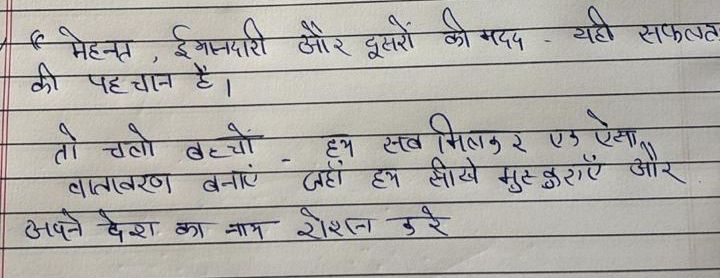 “ मेहनत, ईमानदारी और दूसरों की मदद - यही सफलता
की पहचान है।
तो चलो बच्चों - हम सब मिलकर एक ऐसा
वातावरण बनाएं जहाँ हम सीखे मुस्कुराएँ और
अपने देश का नाम रोशन करे